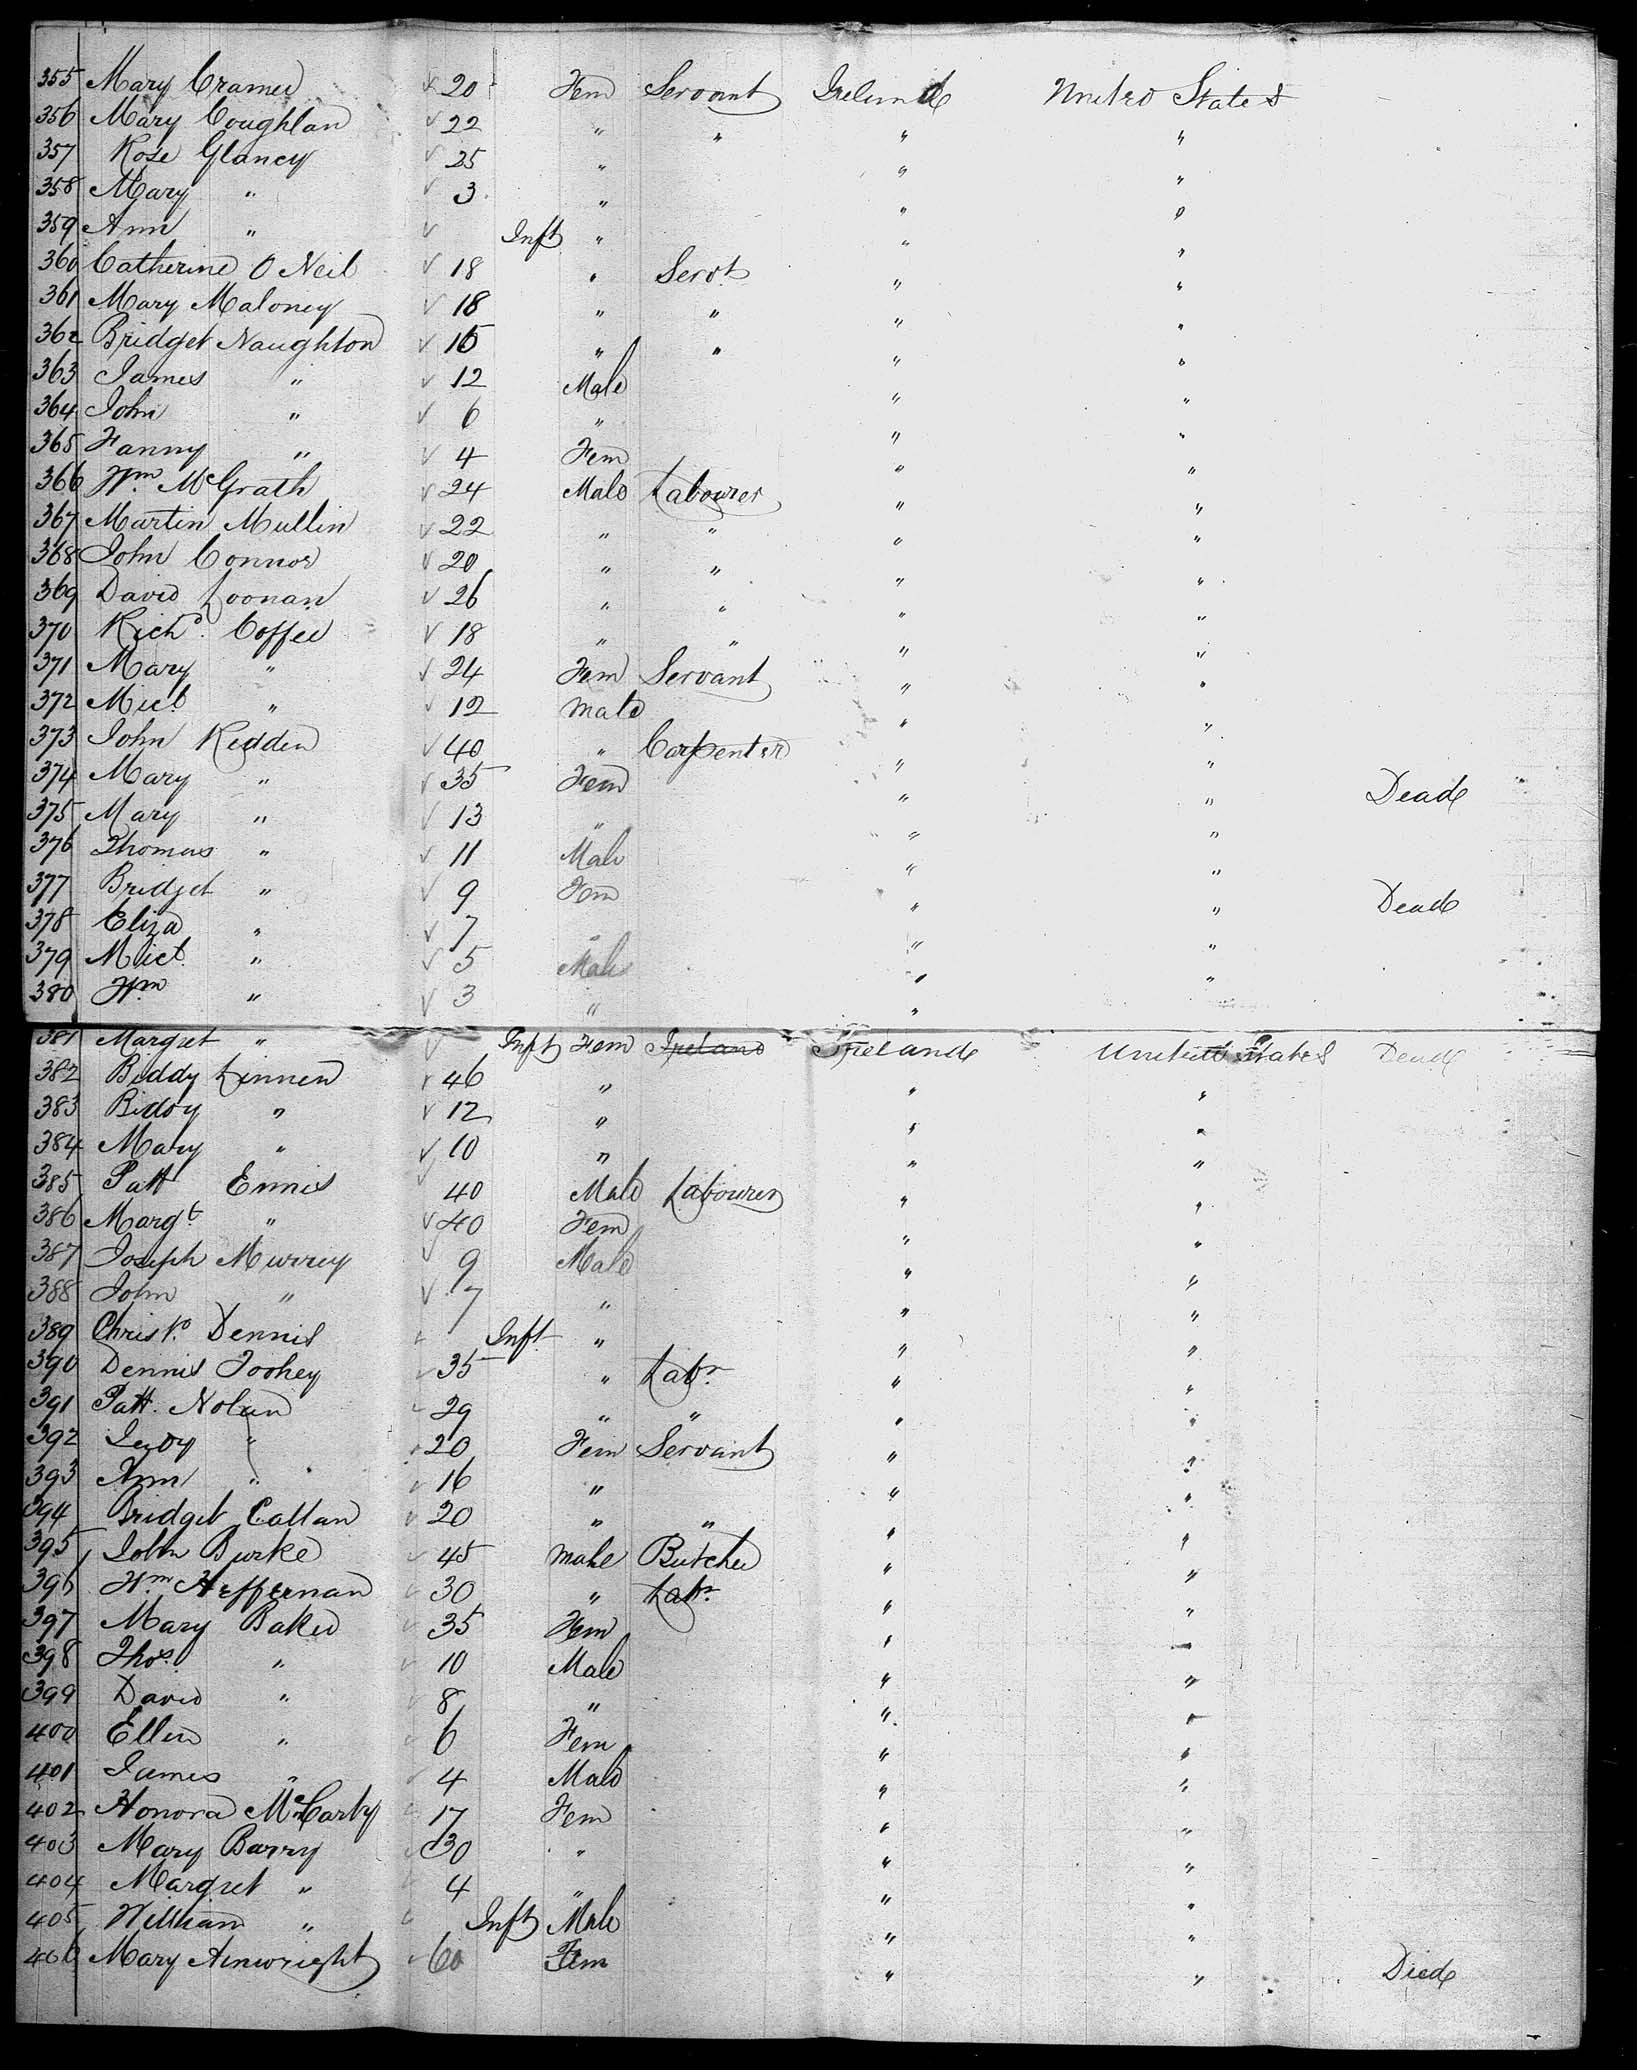 355 Mary Cramer 20 Fem Servant Ireland United States
356 Mary Coughlan 22 " " " "
357 Rose Glancy 25 " " "
358 Mary " 3 " " "
359 Ann " Inft " " "
360 Catherine O Neil 18 " Servt " "
361 Mary Maloney 18 " " " "
362 Bridget Naughton 15 " " " "
363 James " 12 Male " "
364 John " 6 " " "
365 Fanny " 4 Fem " "
366 Wm. McGrath 24 Male Labourer " "
367 Martin Mullin 22 " " " "
368 John Connor 20 " " " "
369 David Loonan 26 " " " "
370 Richd. Coffee 18 " " " "
371 Mary " 24 Fem Servant " "
372 Micl " 12 Male " "
373 John Redden 40 " Carpenter " "
374 Mary " 35 Fem " " Dead
375 Mary " 13 " " "
376 Thomas " 11 Male " "
377 Bridget " 9 Fem " " Dead
378 Eliza " 7 " " "
379 Micl. " 5 Male " "
380 Wm " 3 " "
381 Margret " Inft Fem Ireland Ireland United States Dead
382 Biddy Linnen 46 " " "
383 Biddy " 12 " " "
384 Mary " 10 " " "
385 Patt Ennis 40 Male Labourer " "
386 Margt. " 40 Fem " "
387 Joseph Murrey 9 Male " "
388 John " 7 " " "
389 Christo. Dennis Inft " " "
390 Dennis Toohey 35 " Labr. " "
391 Patt. Nolan 29 " " " "
392 " 20 Fem Servant " "
393 Ann " 16 " " "
394 Bridget Callan 20 " " " "
395 John Burke 45 Male Butcher " "
396 Wm. Heffernan 30 " Labr. " "
397 Mary Baker 35 Fem " "
398 Thos. " 10 Male " "
399 David " 8 " " "
400 Ellen " 6 Fem " "
401 James " 4 Male " "
402 Honora McCarty 17 Fem " "
403 Mary Barry 30 " " "
404 Margret " 4 " " "
405 William " Inft Male " "
406 Mary Ainwright 60 Fem " " Died